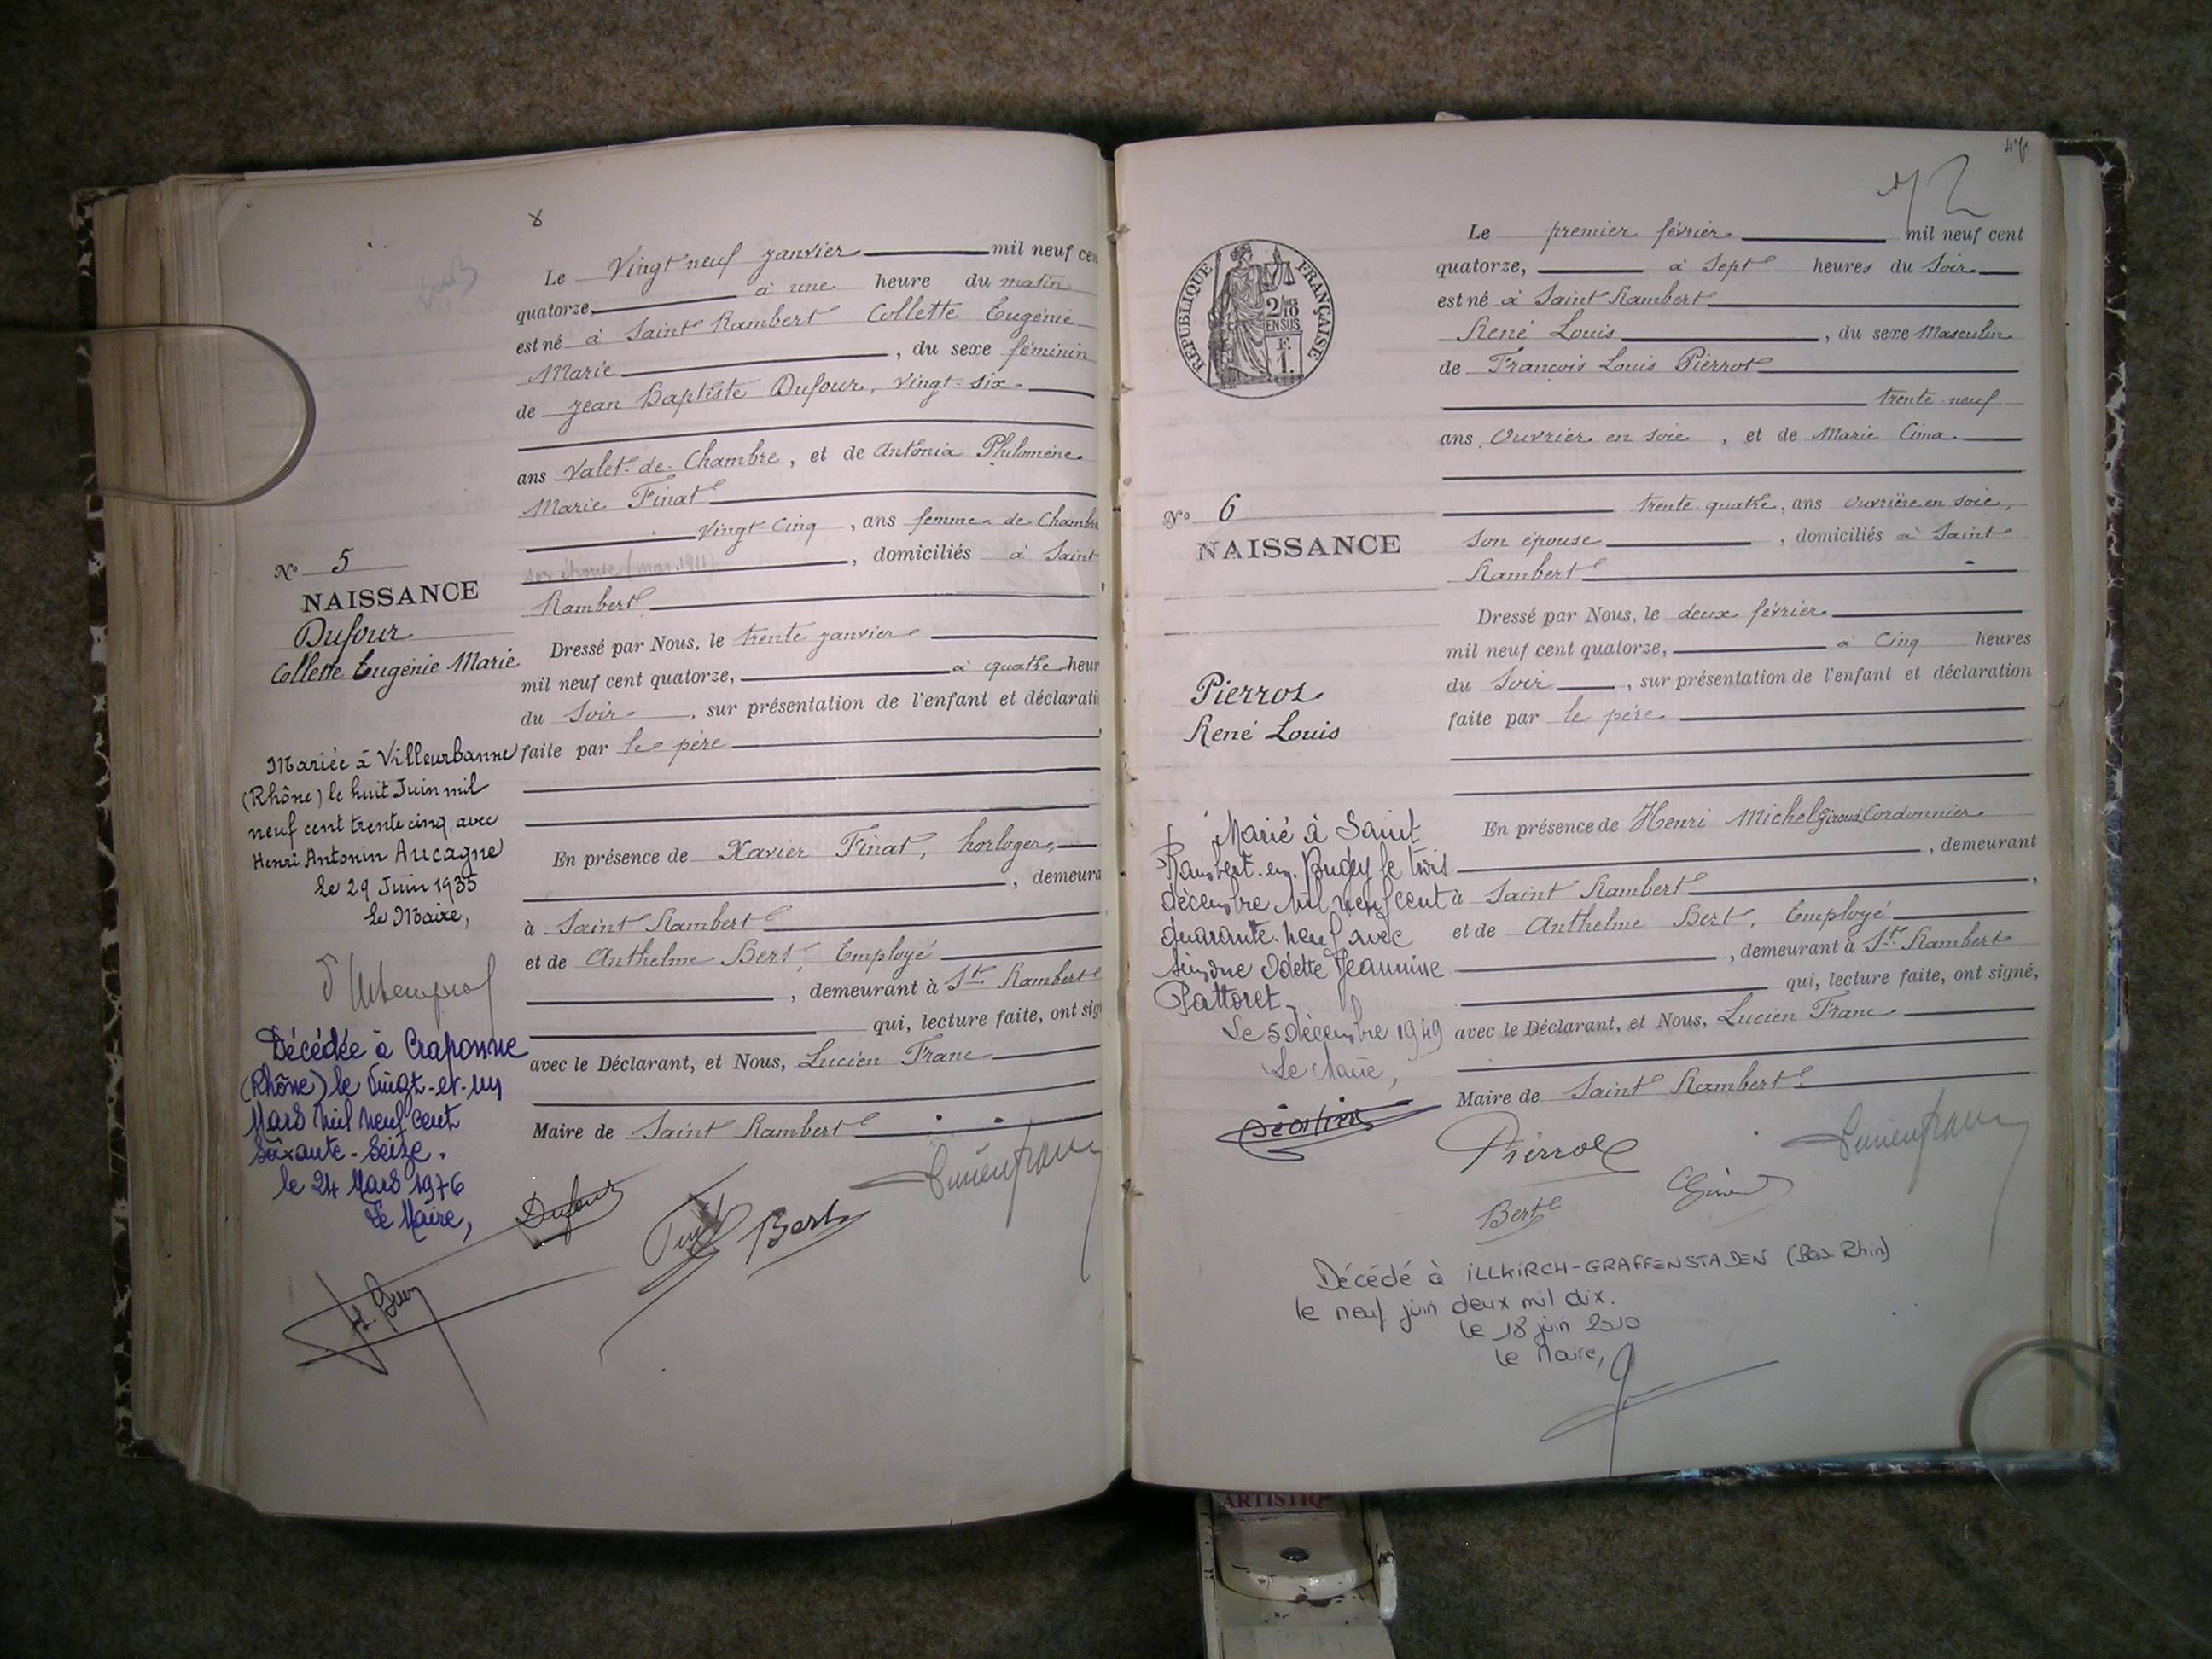 8
Le Vingt neuf janvier mil neuf cen
quatorze, à une heure du matin
est né à Saint Rambert Collette Eugénie
Marie , du sexe féminin
de Jean Baptiste Dufour, vingt-six
ans Valet de Chambre, et de Antonia Philomène
Marie Finat
Vingt Cinq , ans femme de Chambre
, domiciliés à Saint
Rambert
Dressé par Nous, le trente janvier
mil neuf cent quatorze, à quatre heur
du Soir , sur présentation de l'enfant et déclarati
faite par le père
En présence de Xavier Finat, horloger,
, demeura
à Saint Rambert
et de Anthelme Bert, Employé
, demeurant à St Rambert
qui, lecture faite, ont sig
avec le Déclarant, et Nous, Lucien Franc
Maire de Saint Rambert
Dufour
Bert
Lucien franc
No 5
NAISSANCE
Dufour
Collette Eugénie Marie
Mariée à Villeurbanne
(Rhône) le huit Juin mil
neuf cent trente cinq, avec
Henri Antonin Aucagne
Le 29 Juin 1935
Le Maire,
Décédée à Craponne
(Rhône) le Vingt-et-un
Mars mil neuf cent
soixante-seize.
le 24 Mars 1976
Le Maire,
RÉPUBLIQUE FRANÇAISE
2/10
EN SUS
F.
1.
Le premier février mil neuf cent
quatorze, à Sept heures du Soir
est né à Saint Rambert
René Louis , du sexe Masculin
de François Louis Pierrot
trente neuf
ans, Ouvrier en soie , et de Marie Cima
trente quatre, ans Ouvrière en soie,
son épouse , domiciliés à Saint
Rambert
Dressé par Nous, le deux février
mil neuf cent quatorze, à Cinq heures
du Soir , sur présentation de l'enfant et déclaration
faite par le père
En présence de Henri Michel Giroud Cordonnier
, demeurant
à Saint Rambert ,
et de Anthelme Bert, Employé
, demeurant à St Rambert
qui, lecture faite, ont signé,
avec le Déclarant, et Nous, Lucien Franc
Maire de Saint Rambert
Pierrot
Lucien franc
Bert
No 6
NAISSANCE
Pierrot
René Louis
Marié à Saint
Rambert-en-Bugey le trois
décembre mil neuf cent
quarante-neuf avec
Simone Odette Jeannine
Pattoret
Le 5 Décembre 1949
Le Maire,
Décédé à ILLKIRCH-GRAFFENSTADEN (Bas-Rhin)
le neuf juin deux mil dix.
Le 18 juin 2010
Le Maire,
ARTISTIQ